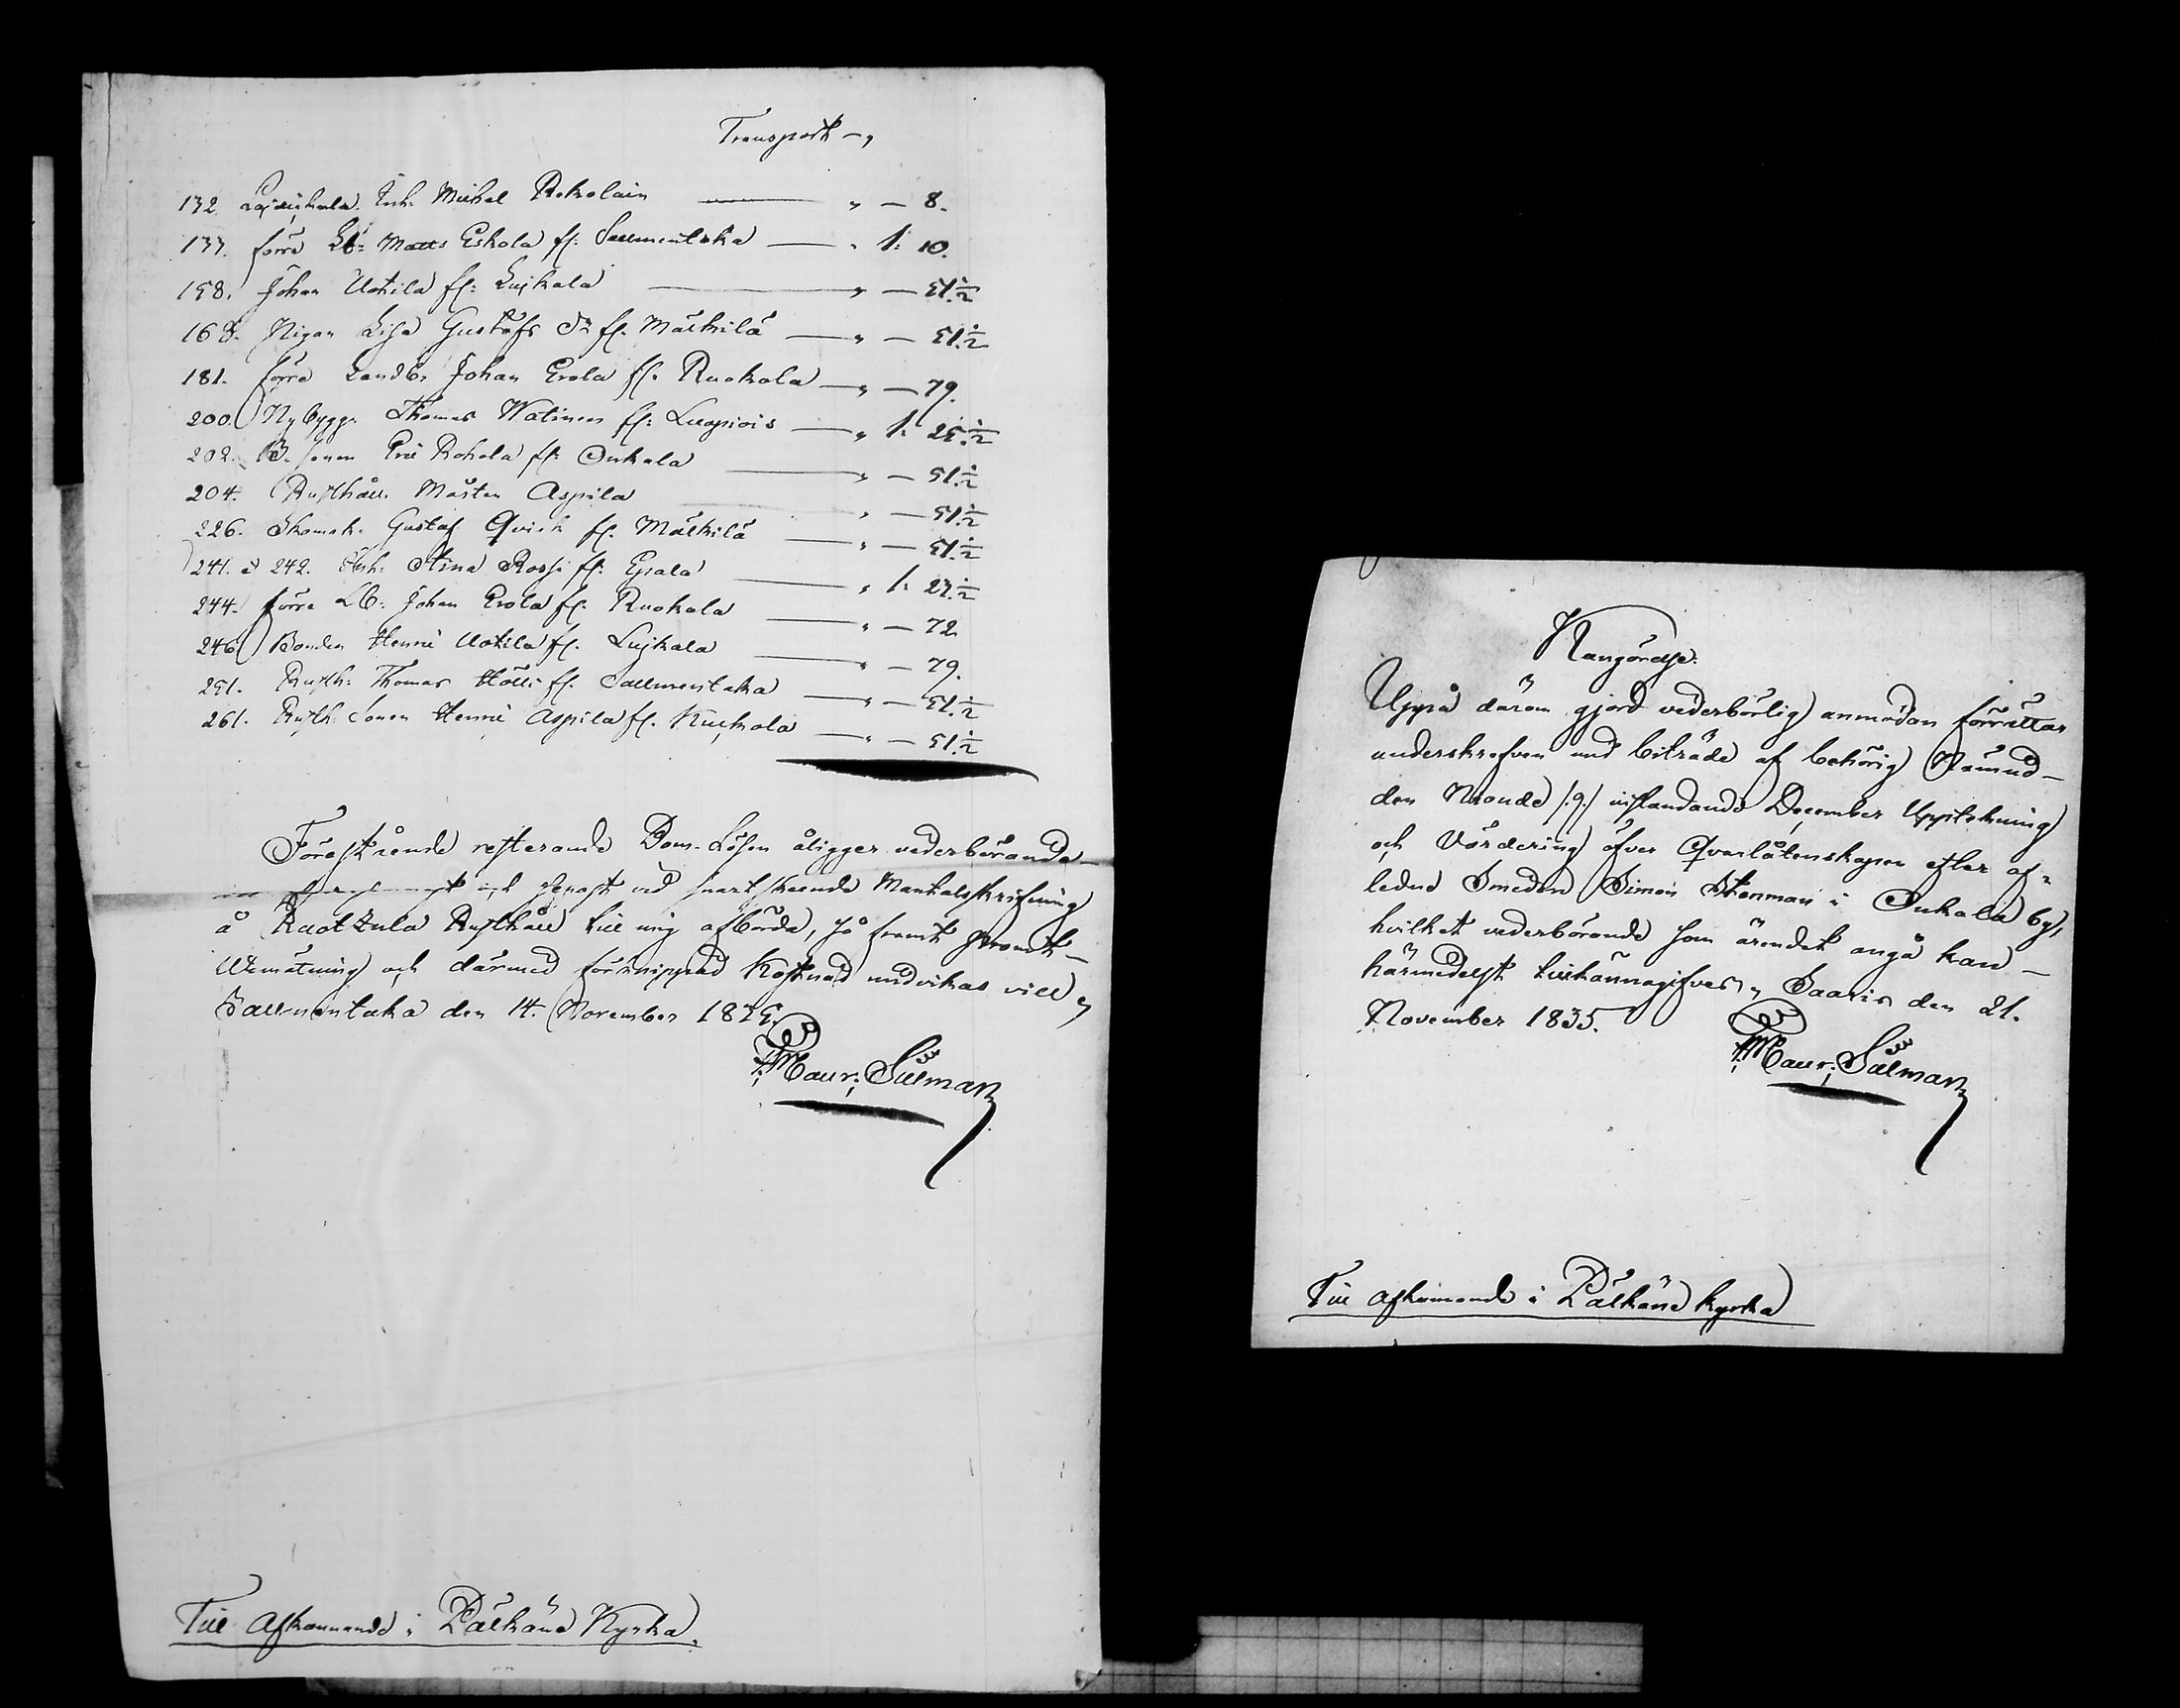 Transport —,
132. Lajkiehala Enk. Michel Rekolain — " — 8.
133. förre Lb: Matts Eskola fl: Sallmentaka — " 1: 10.
158. Johan Uotila fl: Luikala — " — 51.½
168. Pigan Lisa Gustafs Dr fl. Mälkilä — " — 51.½
181. förre Landb. Johan Erola fl. Ruokola — " — 79.
200. Nybygg. Thomas Watinen fl: Luopiois — " 1: 25.½
202. B. sonen Eric Rohola fl: Onkala — " — 51.½
204. Rusthåll. Mårten Aspila — " — 51.½
226. Skomak. Gustaf Qvick fl. Mälkilä — " — 51.½
241. & 242. Enk. Stina Rossi fl: Epaala — " 1: 27.½
244. förre Lb: Johan Erola fl. Ruokola — " — 72
246. Bonden Henric Uotila fl. Luikala — " — 79.
251. Rusth: Thomas Hölli fl. Sallmentaka — " — 51.½
261. Rusth. Sonen Henric Aspila fl. Kuckola — " — 51.½
Förestående resterande Dom-Lösen åligger vederbörande
och senast vid snart skeende Mantalskrifning
å Raotzula Rusthåll till mig afbörda, så framt promt
Utmätning och därmed förknippad Kostnad undvikas vill,
Sallmentaka den 14. November 1835.
Maur: Silman
Till Afkunnande i Pälkäne Kyrka.
Kungörelse.
Uppå därom gjord vederbörlig anmodan förrättar
underskrefven med biträde af behörig Nämnd
den Nionde /:9:/ instundande December Uppteckning
och Värdering öfver Qvarlåtenskapen efter af-
ledne Smeden Simon Stenman i Onkala by,
hvilket vederbörande som ärendet angå kan
härmedelst tillkännagifves, Saaris den 21.
November 1835.
Maur: Silman
Till afkunnande i Pälkäne kyrka